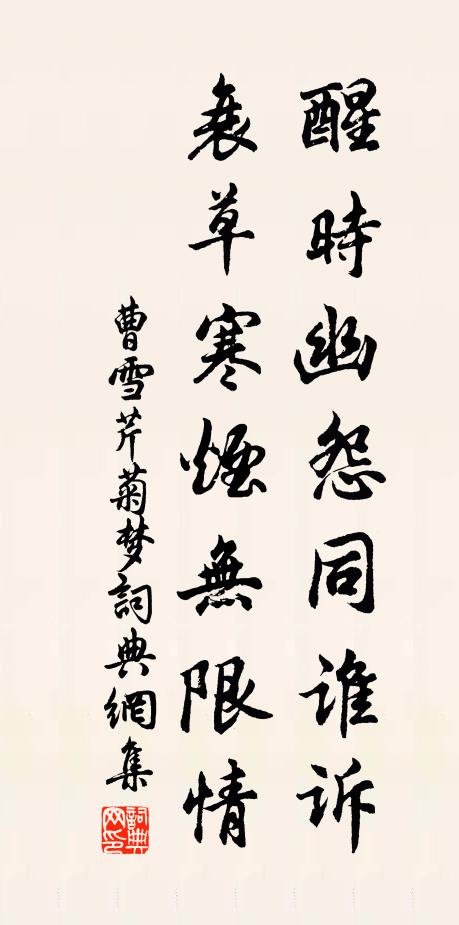 醒時幽怨同誰訴
衰草寒煙無限情
曹雪芹菊梦詞典網集
詞典网印